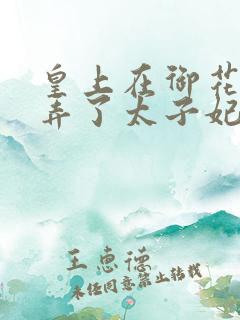 皇上在御花
弄了太子妃
王惠德
未经同意禁止转载